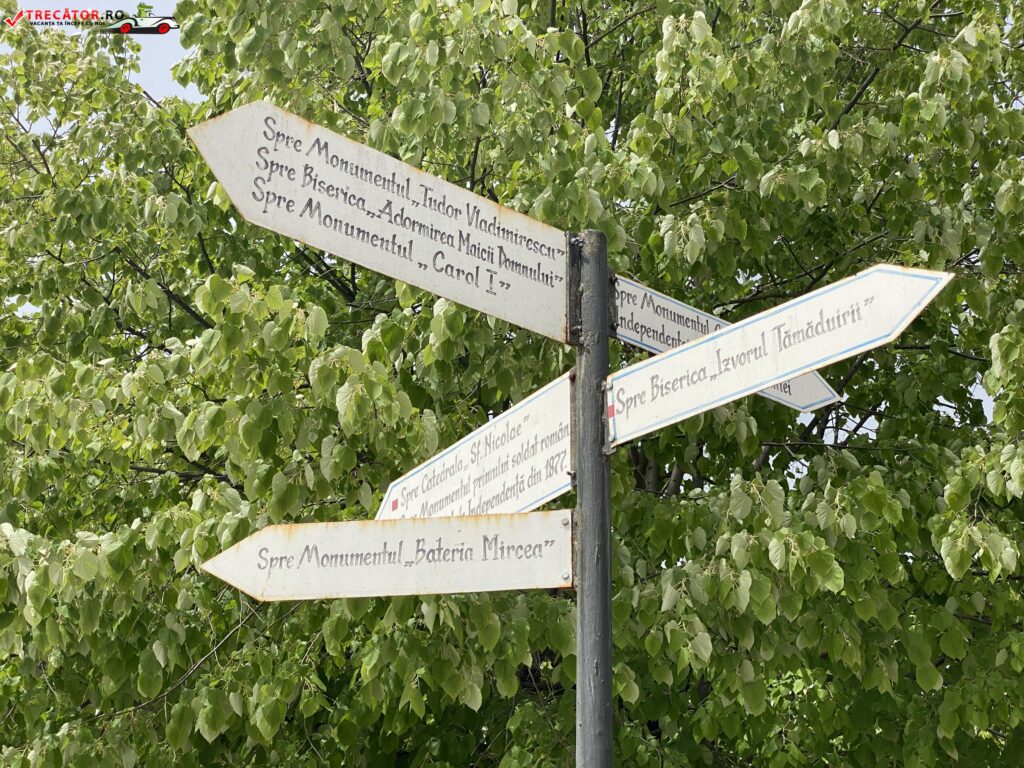 TRECĂTOR.RO
VACANȚA TA ÎNCEPE CU NOI
Spre Monumentul „Tudor Vladimirescu”
Spre Biserica „Adormirea Maicii Domnului”
Spre Monumentul „Carol I”
Spre Monumentul
Spre Biserica „Izvorul Tămăduirii”
Spre Catedrala „Sf. Nicolae”
Spre Monumentul primului soldat român
Independență din 1877
Spre Monumentul „Bateria Mircea”